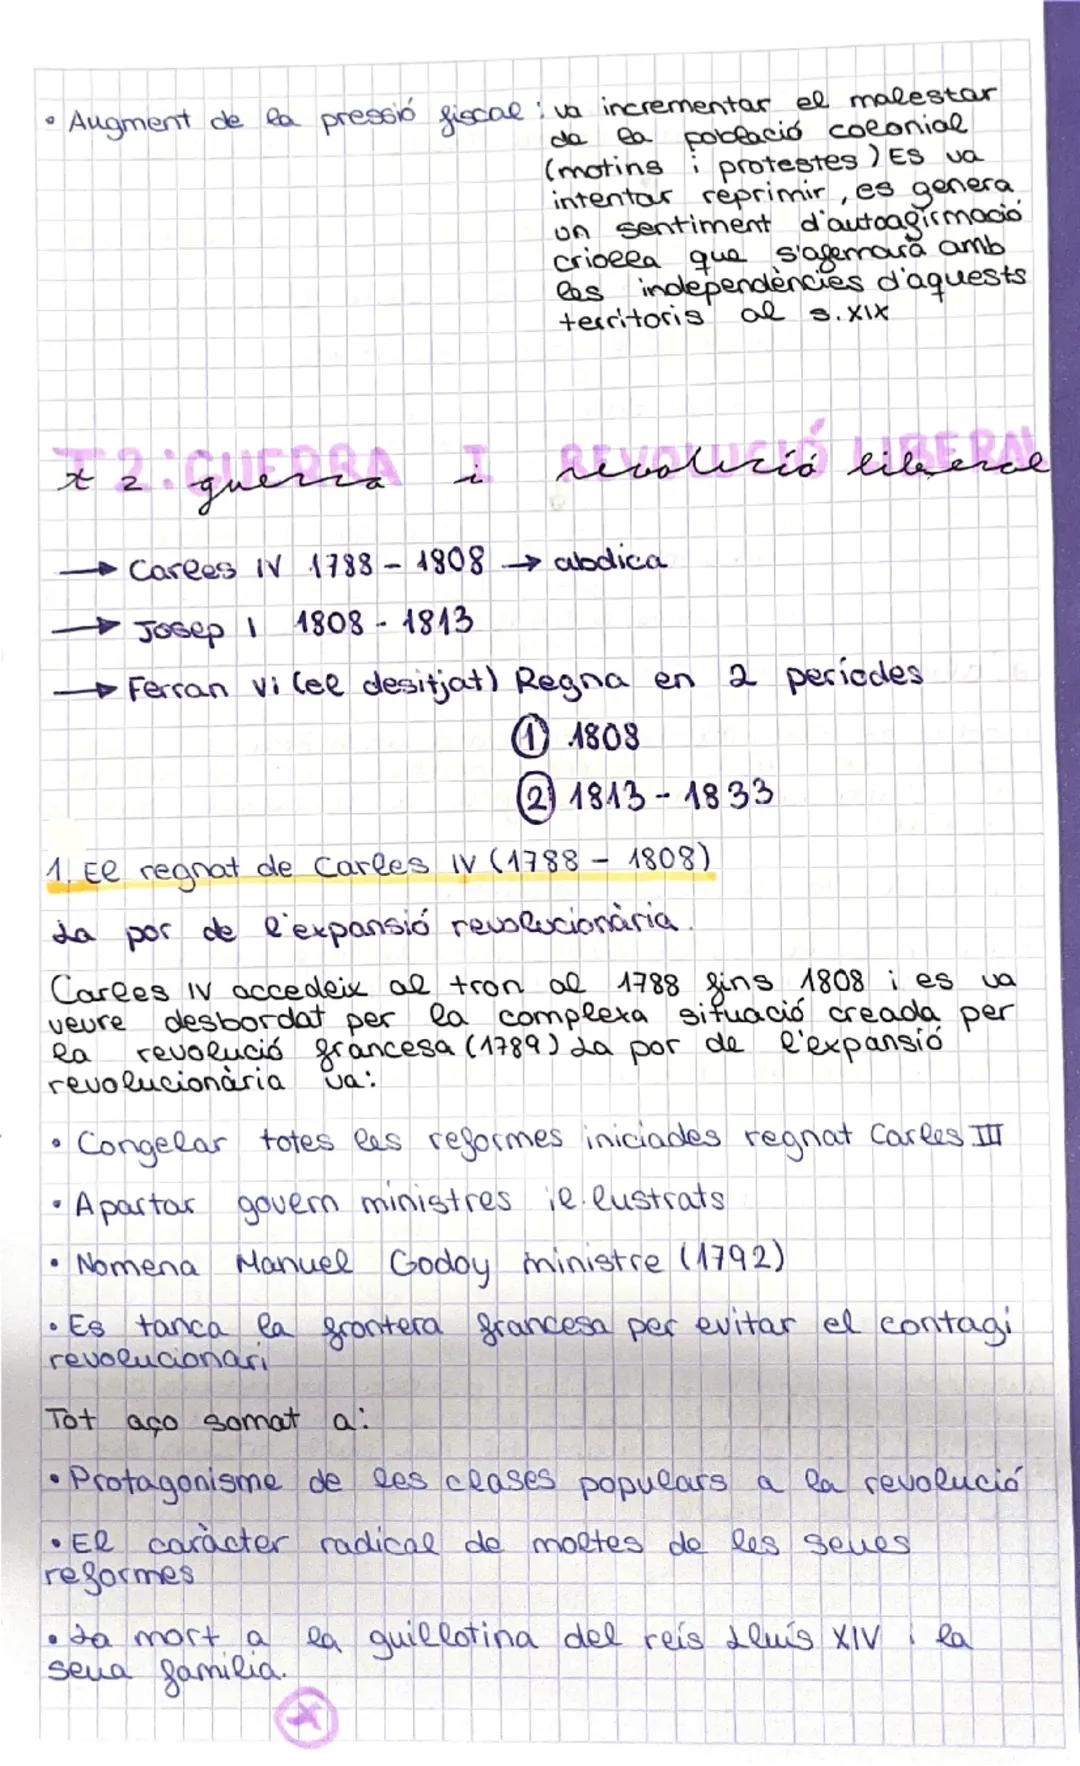 • Augment de la pressió fiscal: va incrementar el malestar
de la població colonial
(motins i protestes) Es va
intentar reprimir, es genera
un sentiment d'autoafirmació
criolla que s'afermarà amb
les independències d'aquests
territoris al s.XIX
T2: GUERRA I REVOLUCIÓ LIBERAL
t2: guerra i revolució liberal
→ Carles IV 1788 - 1808 → abdica
→ Josep I 1808 - 1813
→ Ferran VI (el desitjat) Regna en 2 períodes
① 1808
② 1813 - 1833
1. El regnat de Carles IV (1788 - 1808)
La por de l'expansió revolucionària.
Carles IV accedeix al tron al 1788 fins 1808 i es va
veure desbordat per la complexa situació creada per
la revolució francesa (1789) La por de l'expansió
revolucionària va:
• Congelar totes les reformes iniciades regnat Carles III
• Apartar govern ministres il·lustrats
• Nomena Manuel Godoy ministre (1792)
• Es tanca la frontera francesa per evitar el contagi
revolucionari
Tot aço somat a:
• Protagonisme de les clases populars a la revolució
• El caràcter radical de moltes de les seues
reformes
• La mort a la guillotina del reis Lluís XIV i la
seua família.